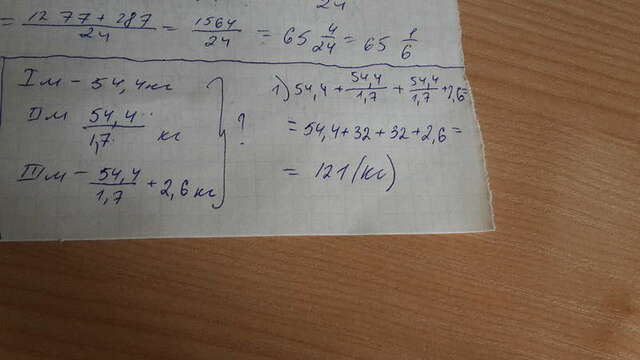 24
= \frac{1277 + 287}{24} = \frac{1564}{24} = 65 \frac{4}{24} = 65 \frac{1}{6}
I м – 54,4 кг
II м \frac{54,4}{1,7} кг } ?
III м – \frac{54,4}{1,7} + 2,6 кг
1) 54,4 + \frac{54,4}{1,7} + \frac{54,4}{1,7} + 2,6 =
= 54,4 + 32 + 32 + 2,6 =
= 121 (кг)